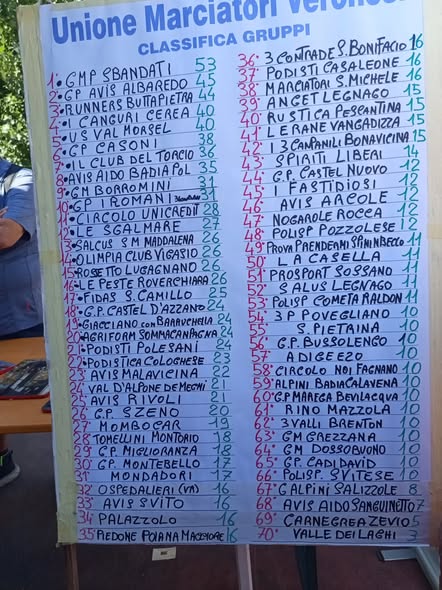 Unione Marciatori Verones
CLASSIFICA GRUPPI
1° GMP SBANDATI 53
2° GP AVIS ALBAREDO 45
3° RUNNERS BUTTAPIETRA 44
4° I CANGURI CEREA 40
5° US VAL MORSEL 40
6° GP CASONI 38
7° IL CLUB DEL TORCIO 36
8° AVIS AIDO BADIA POL 35
9° GM BORROMINI 31
10° GP I ROMANI 31
11° CIRCOLO UNICREDIT 28
12° LE SGALMARE 27
13° SALCUS S M MADDALENA 26
14° OLIMPIA CLUB VIGASIO 26
15° ROSSETTO LUGAGNANO 26
16° LE PESTE ROVERCHIARA 26
17° FIDAS S. CAMILLO 25
18° G.P. CASTEL D'AZZANO 24
19° GIACCIANO CON BARUCHELLA 24
20° AGRIFORM SOMMACAMPAGNA 24
21° PODISTI POLESANI 24
22° PODISTICA COLOGNESE 23
23° AVIS MALAVICINA 22
24° VAL D'ALPONE DE MEGNI 21
25° AVIS RIVOLI 21
26° G.P. SZENO 20
27° MOMBOCAR 19
28° TOMELLINI MONTORIO 18
29° GP. MIGLIORANZA 18
30° GP. MONTEBELLO 17
31° MONDADORI 17
32° OSPEDALIERI (VR) 16
33° AVIS SVITO 16
34° PALAZZOLO 16
35° PIEDONE POIANA MAGGIORE 16
36° 3 CONTRADE S. BONIFACIO 16
37° PODISTI CASALEONE 16
38° MARCIATORI S. MICHELE 16
39° ANGET LEGNAGO 15
40° RUSTICA PESCANTINA 15
41° LE RANE VANGADIZZA 15
42° I 3 CAMPANILI BONAVICINA 15
43° SPIRITI LIBERI 14
44° G.P. CASTEL NUOVO 12
45° I FASTIDIOSI 12
46° AVIS ARCOLE 12
47° NOGAROLE ROCCA 12
48° POLISP POZZOLESE 12
49° PROVA PRENDERMI SPININBECCO 11
50° LA CASELLA 11
51° PROSPORT SOSSANO 11
52° SALUS LEGNAGO 11
53° POLISP COMETA RALDON 11
54° 3 P POVEGLIANO 10
55° S. PIETAINA 10
56° G.P. BUSSOLENGO 10
57° ADIGE EZO 10
58° CIRCOLO NOI FAGNANO 10
59° ALPINI BADIA CALAVENA 10
60° G.P MAREGA BEVILACQUA 10
61° RINO MAZZOLA 10
62° 3 VALLI BRENTON 10
63° GM GREZZANA 10
64° GM DOSSOBUONO 10
65° GP. CADIDAVID 10
66° POLISP. SVITESE 10
67° G ALPINI SALIZZOLE 8
68° AVIS AIDO SANGUINETTO 7
69° CARNEGREA ZEVIO 5
70° VALLE DEI LAGHI 3